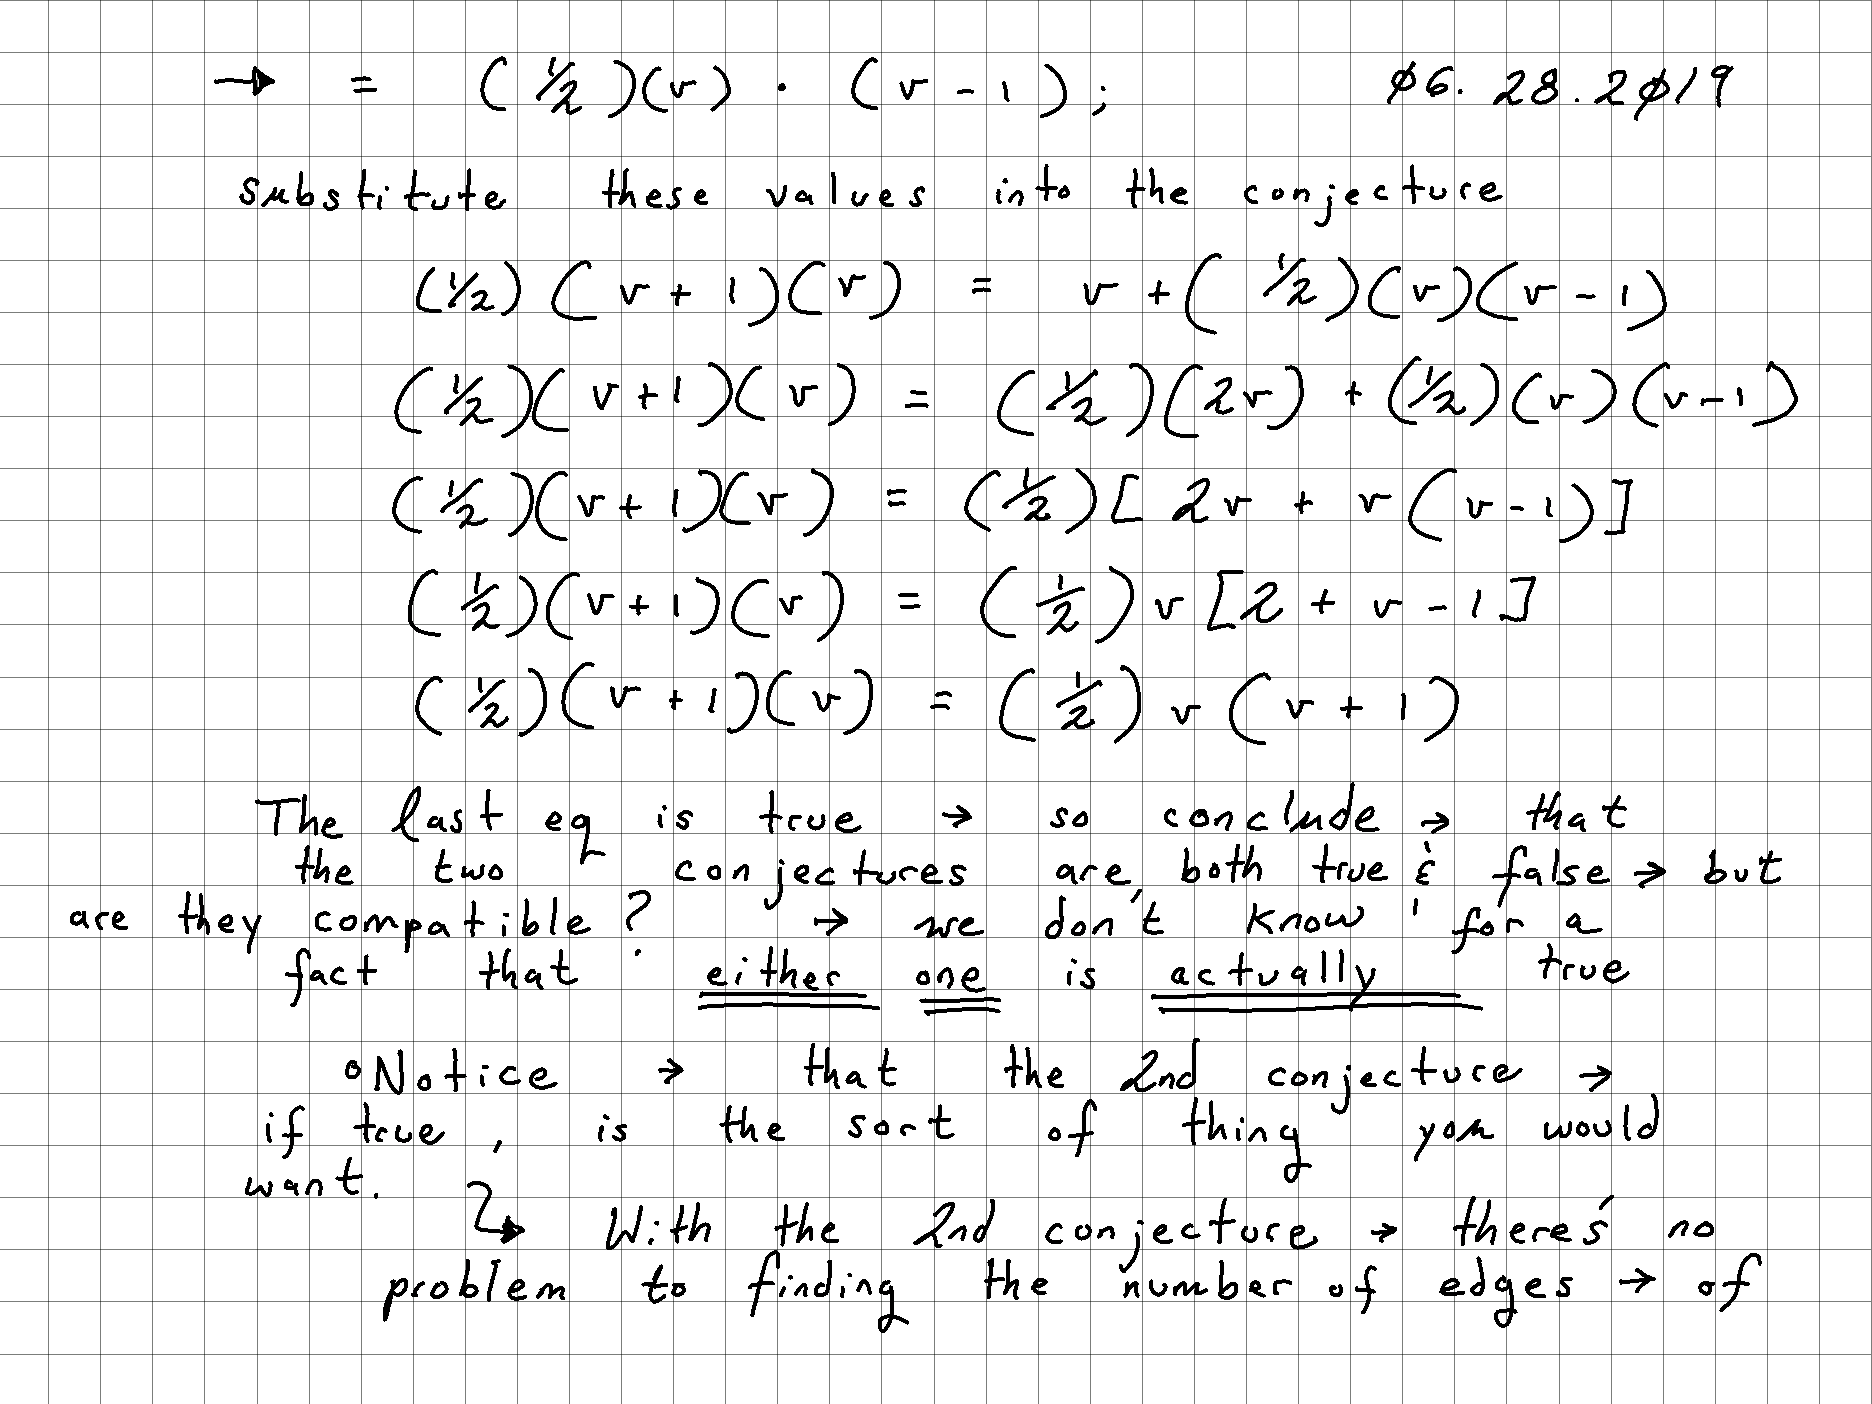 → = (1/2)(v) · (v - 1); 06.28.2019
substitute these values into the conjecture
(1/2)(v + 1)(v) = v + (1/2)(v)(v - 1)
(1/2)(v + 1)(v) = (1/2)(2v) + (1/2)(v)(v - 1)
(1/2)(v + 1)(v) = (1/2)[2v + v(v - 1)]
(1/2)(v + 1)(v) = (1/2)v[2 + v - 1]
(1/2)(v + 1)(v) = (1/2)v(v + 1)
The last eq is true → so conclude → that
the two conjectures are both true & false → but
are they compatible? → we don't know for a
fact that either one is actually true
∘ Notice → that the 2nd conjecture →
if true, is the sort of thing you would
want.
↳ With the 2nd conjecture → there's no
problem to finding the number of edges → of